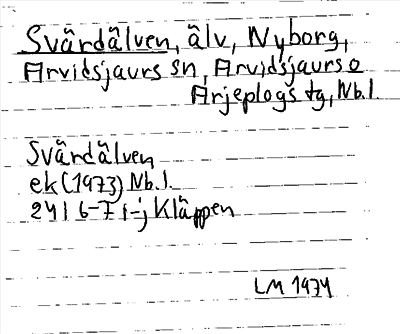 Svärdälven, älv, Nyborg,
Arvidsjaurs sn, Arvidsjaurs o
Arjeplogs tg, Nb.l.
Svärdälven
ek (1973) Nb.l.
24I 6-7 i-j Kläppen
LM 1974